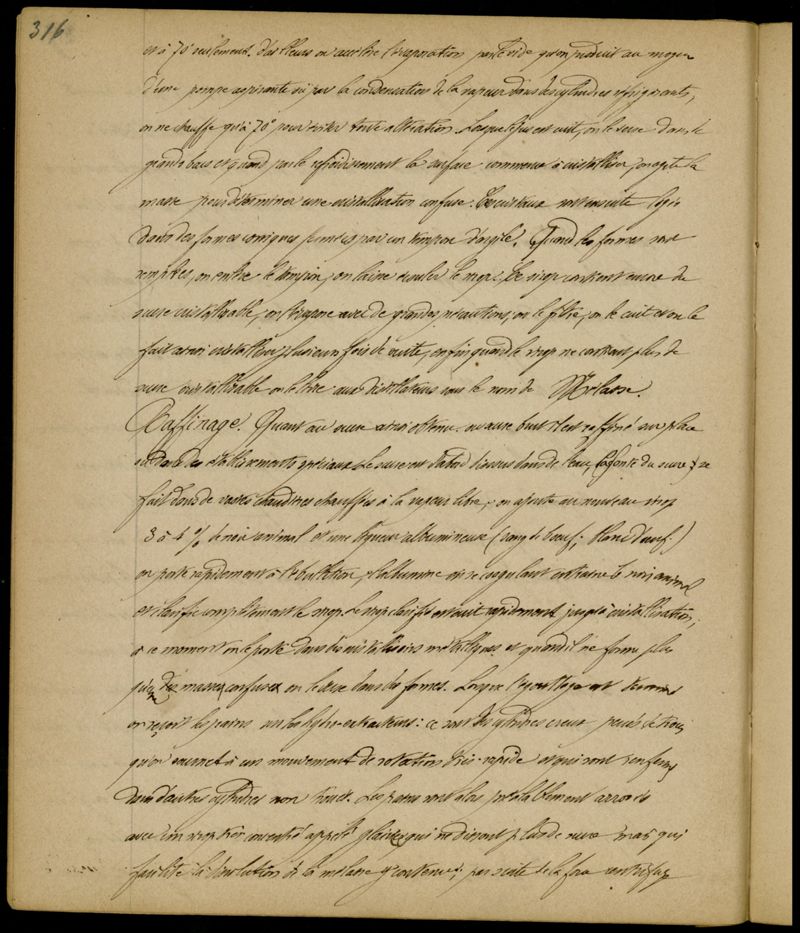 316
et à 70° seulement. D'ailleurs on accélère l'évaporation par le vide qu'on produit au moyen
d'une pompe aspirante ou par la condensation de la vapeur dans des cylindres réfrigérants,
on ne chauffe qu'à 70° pour éviter toute altération. Lorsque le jus est cuit, on le verse dans de
grands bacs et quand par le refroidissement la surface commence à cristalliser, on agite la
masse pour déterminer une cristallisation confuse. Les cristaux sont ensuite
dans des formes coniques fermées par un tampon d'argile. Quand les formes sont
remplies, on enlève le tampon, on laisse écouler le sirop. Ce sirop contient encore du
sucre cristallisable, on l'évapore avec de grandes précautions, on le filtre, on le cuit et on le
fait ainsi cristalliser plusieurs fois de suite, enfin quand le sirop ne contient plus de
sucre cristallisable on le livre aux distillateurs sous le nom de Mélasse.
Raffinage. Quant au sucre ainsi obtenu ou sucre brut il est raffiné sur place
ou dans des établissements spéciaux. Le sucre est d'abord dissous dans de l'eau, (la fonte du sucre) se
fait dans de vastes chaudières chauffées à la vapeur libre, on ajoute au nouveau sirop
3 à 4 % de noir animal et une liqueur albumineuse (sang de bœuf; blanc d'œuf.)
on porte rapidement à l'ébullition, l'albumine en se coagulant entraîne le noir animal
et clarifie complètement le sirop. Le sirop clarifié est cuit rapidement jusqu'à cristallisation,
à ce moment on le porte dans des cristallisoirs métalliques et quand il ne forme plus
qu'une masse confuse on le verse dans des formes. Lorsque l'égouttage est terminé
on reçoit les pains sur les hydro-extracteurs: ce sont des cylindres creux percés de trous
qu'on soumet à un mouvement de rotation très-rapide et qui sont renfermés
dans d'autres cylindres non troués. Les pains sont alors préalablement arrosés
avec un sirop très concentré appelé clairée qui ne dissout plus de sucre mais qui
facilite la dissolution de la mélasse y contenue, par suite de la force centrifuge